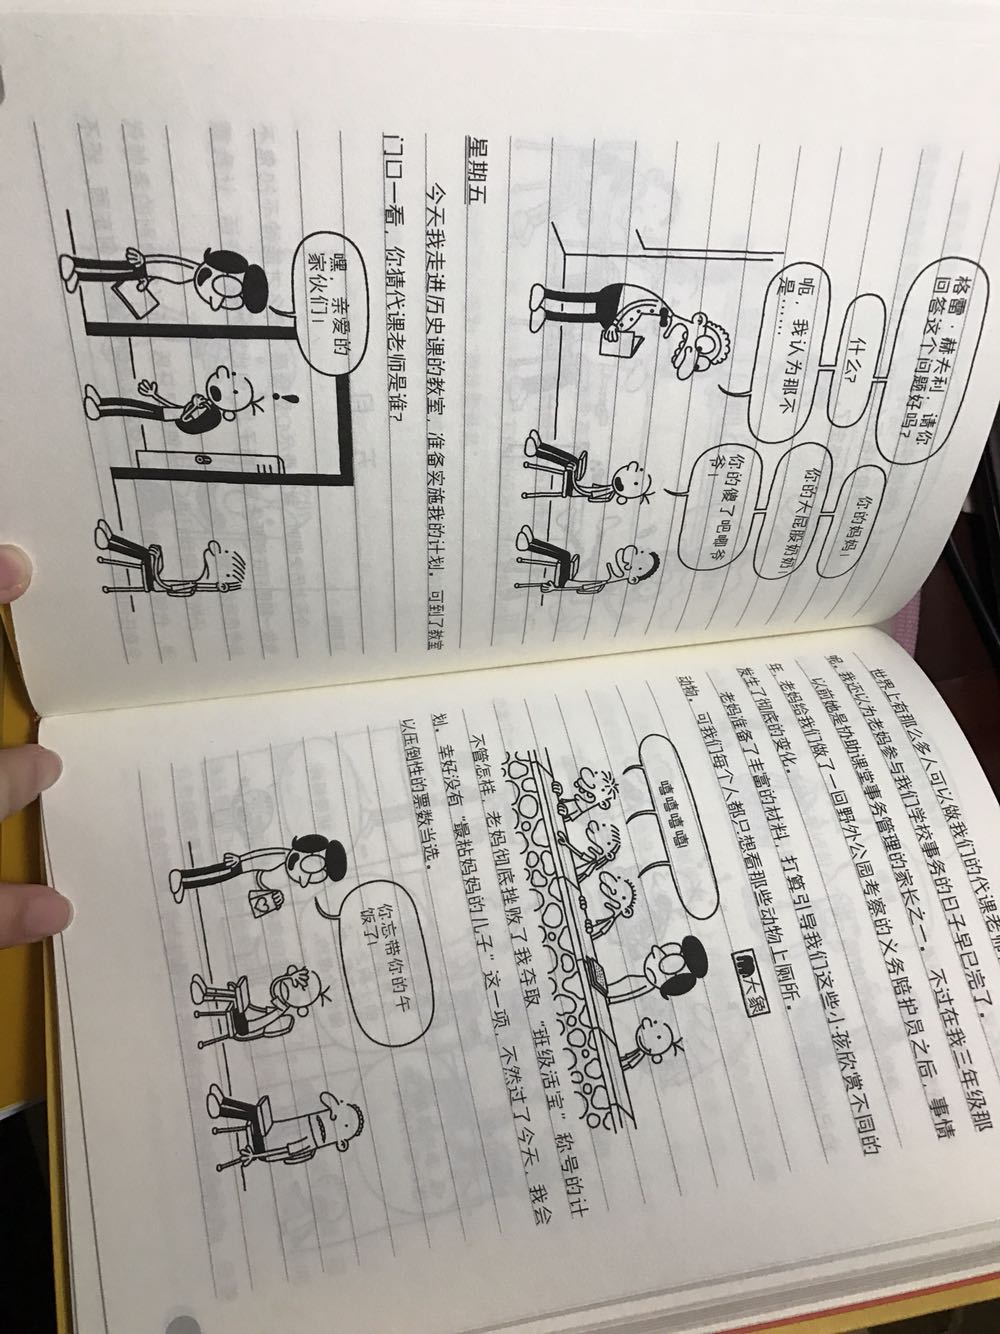 格雷·赫夫利，请你
回答这个问题好吗？
什么？
呃，我认为那不
是……
你的妈妈！
你的大屁股奶奶！
你的傻了吧唧爷
爷！
星期五
今天我走进历史课的教室，准备实施我的计划。可到了教室
门口一看，你猜代课老师是谁？
嘿，亲爱的
家伙们！
世界上有那么多人可以做我们的代课老师
呢，我还以为老妈参与我们学校事务的日子早已完了。
以前她是协助课堂事务管理的家长之一。不过在我三年级那
年，老妈给我们做了一回野外公园考察的义务陪护员之后，事情
发生了彻底的变化。
老妈准备了丰富的材料，打算引导我们这些小孩欣赏不同的
动物，可我们每个人都只想看那些动物上厕所。
嘻嘻嘻嘻！
大象
不管怎样，老妈彻底挫败了我夺取“班级活宝”称号的计
划，幸好没有“最粘妈妈的儿子”这一项，不然过了今天，我会
以压倒性的票数当选。
你忘带你的午
饭了！